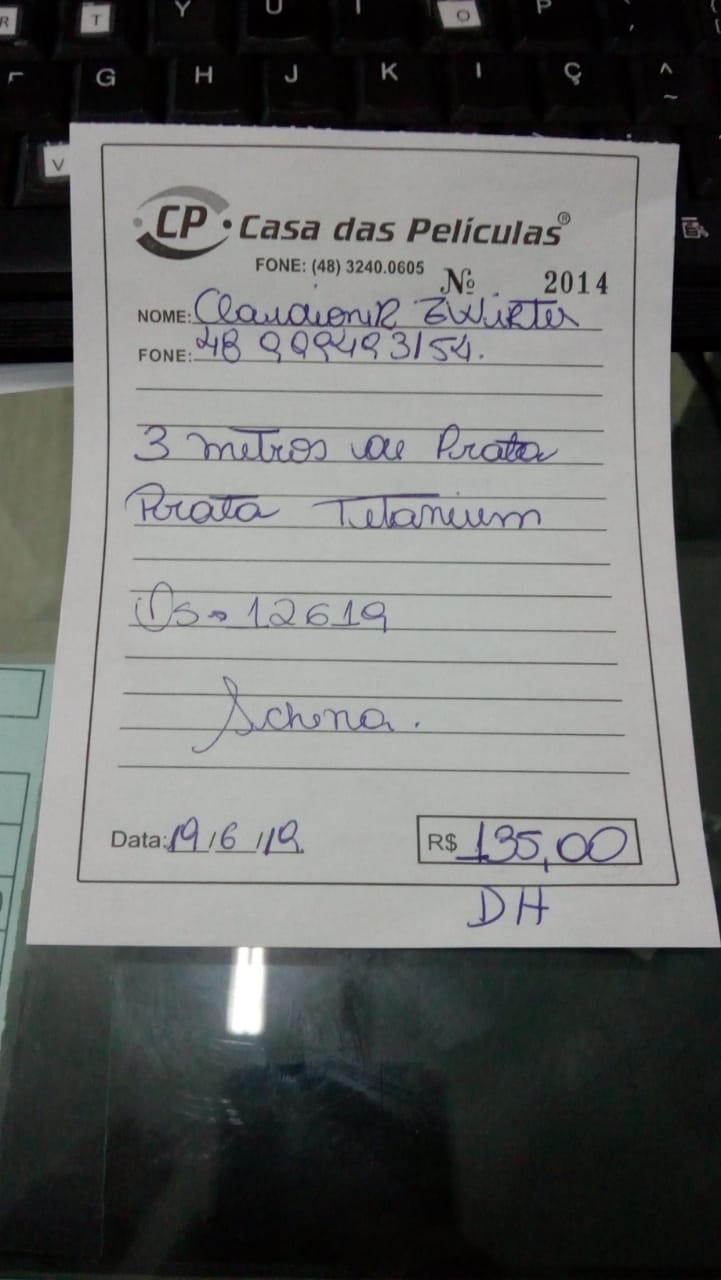 R T Y U I O P
G H J K Ç ^ ~
V
CP Casa das Películas®
FONE: (48) 3240.0605
Nº 2014
NOME: Claudionir Zwirtes
FONE: 48 999493154.
3 metros de Prata
Prata Titanium
Os. 12619
Schena.
Data: 19/6/19
R$ 135,00
DH